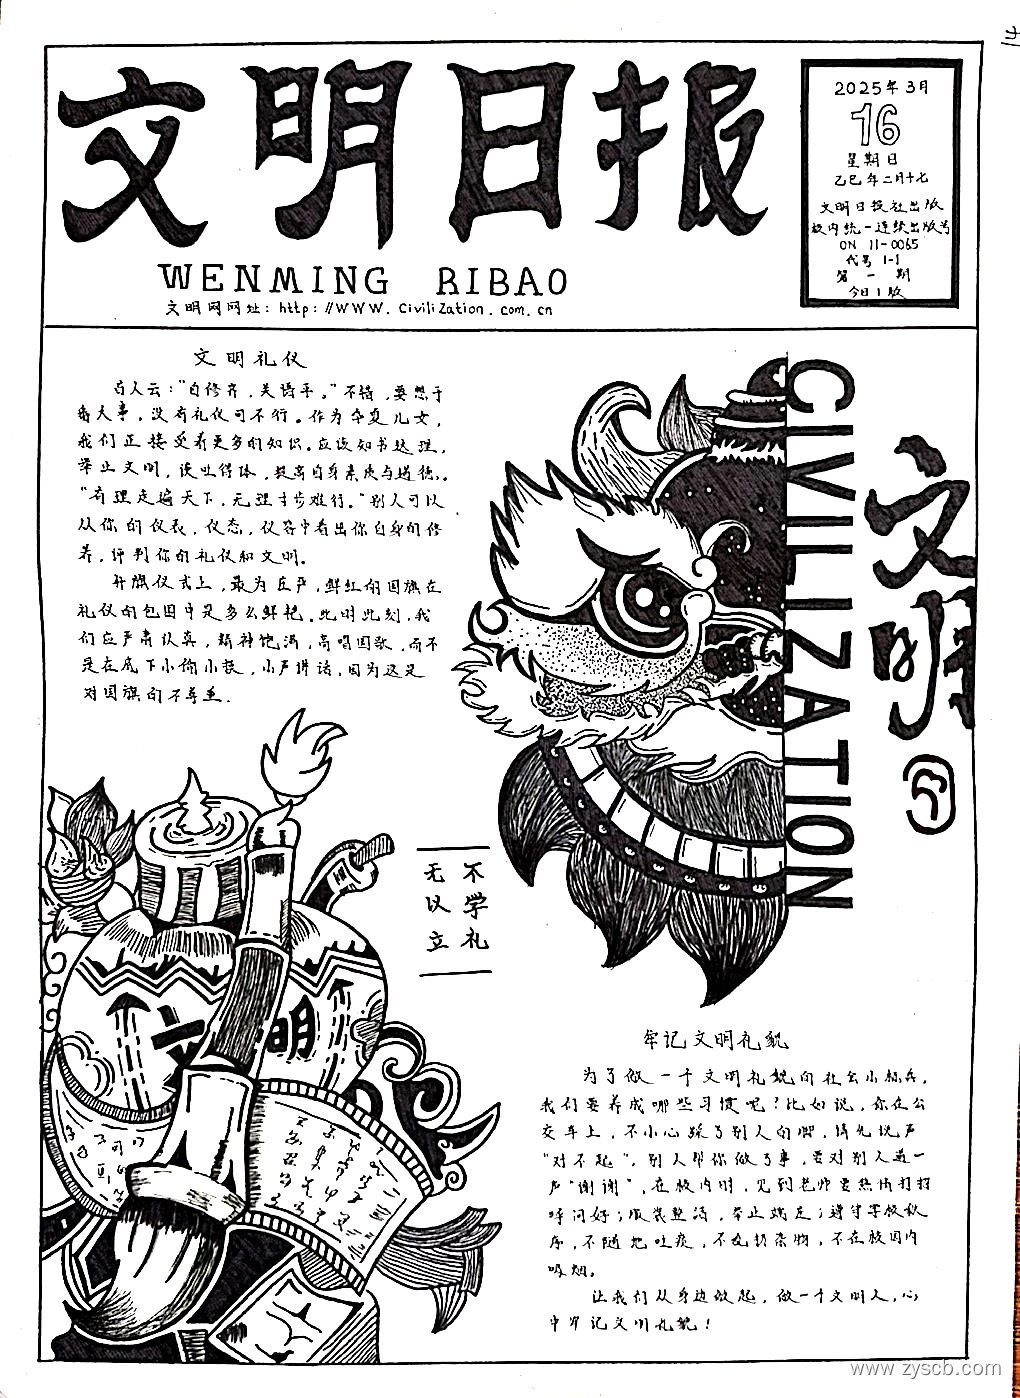 文明日报
WENMING RIBAO
文明网网址：http：//WWW.CiviliZation.com.cn
2025年3月
16
星期日
乙巳年二月十七
文明日报社出版
校内统一连续出版号
ON 11-0065
代号1-1
第一期
今日1版
文明礼仪
古人云："自修齐，关语平。"不错，要想干
番大事，没有礼仪可不行。作为华夏儿女，
我们正接受着更多的知识。应该知书达理，
举止文明，谈吐得体，提高自身素质与道德。
"有理走遍天下，无理寸步难行。"别人可以
从你的仪表，仪态，仪容中看出你自身的修
养，评判你的礼仪和文明。
升旗仪式上，最为庄严，鲜红的国旗在
礼仪的包围中是多么鲜艳。此时此刻，我
们应严肃认真，精神饱满，高唱国歌，而不
是在底下小偷小摸，小声讲话，因为这是
对国旗的不尊重.
CIVILIZATION
文明
不学礼
无以立
文明
牢记文明礼貌
为了做一个文明礼貌的社会小标兵，
我们要养成哪些习惯呢？比如说，你在公
交车上，不小心踩了别人的脚，请先说声
"对不起"，别人帮你做了事，要对别人道一
声"谢谢"，在校内时，见到老师要热情打招
呼问好；服装整洁，举止端庄；遵守学校秩
序，不随地吐痰，不乱扔杂物，不在校园内
吸烟。
让我们从身边做起，做一个文明人，心
中牢记文明礼貌！
www.zyscb.com